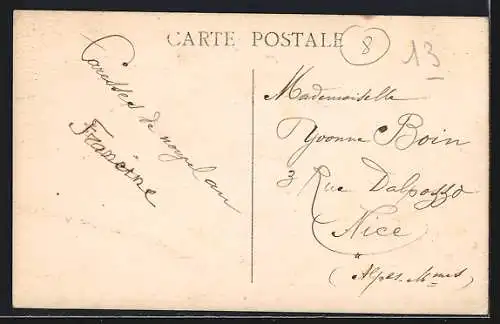 CARTE POSTALE
8
13
Caresses de noyel au
Francine
Mademoiselle
Yvonne Boin
3 Rue Dalpozzo
Nice
(Alpes-Mmes)